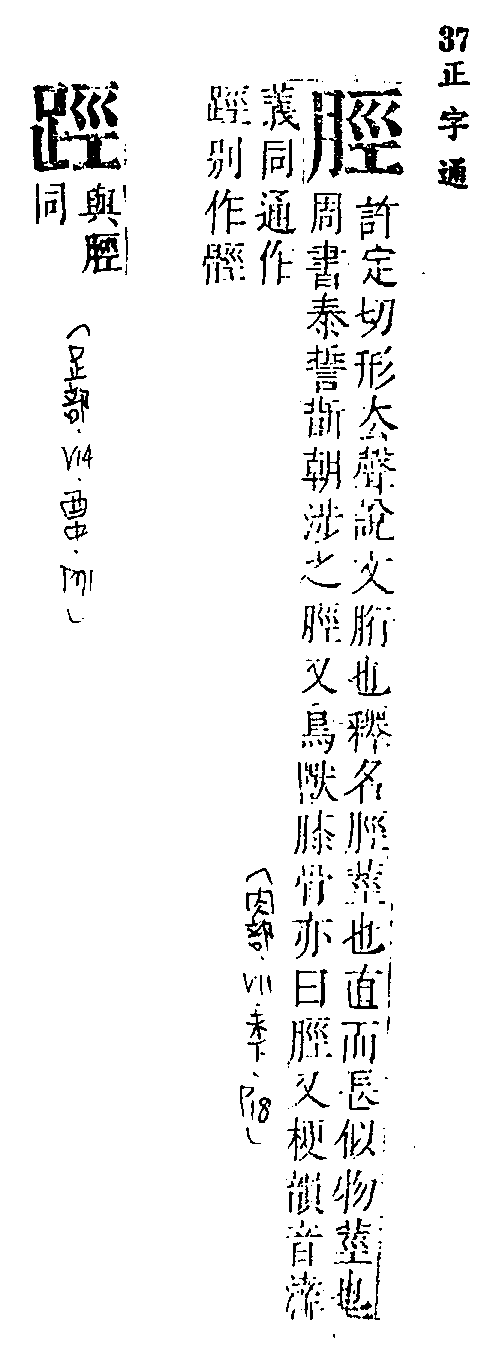 37正字通
脛
許定切形去聲說文胻也釋名脛莖也直而長似物莖也
周書泰誓斮朝涉之脛又鳥獸膝骨亦曰脛又梗韻音涬
義同通作
踁別作
（肉部．V11．未下．P18）
踁
與脛
同
（足部．V14．酉中．P71）